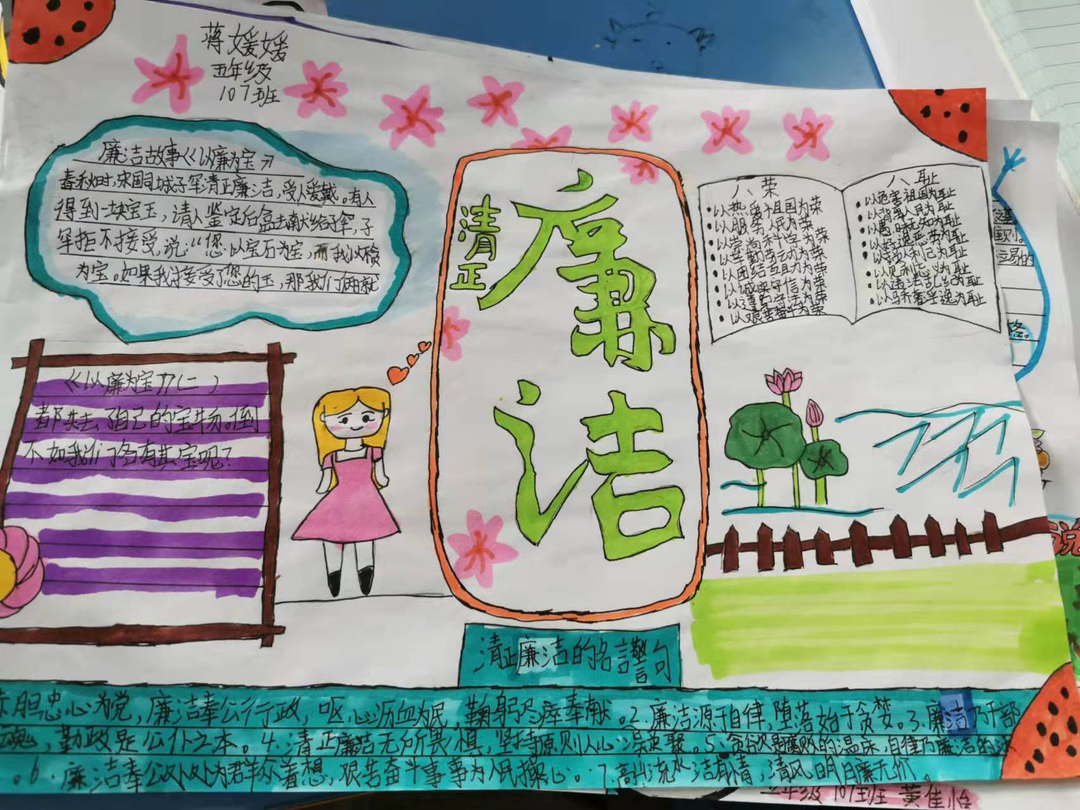 蒋媛媛
五年级
107班
廉洁故事《以廉为宝》
春秋时,宋国司城子罕清正廉洁,受人爱戴。有人
得到一块宝玉,请人鉴定后拿去献给子罕,子
罕拒不接受,说:"您以宝石为宝,而我以廉
为宝。如果我接受了您的玉,那我们俩就
《以廉为宝》(二)
都失去了自己的宝物。倒
不如我们各有其宝呢?
清正
廉洁
八荣
以热爱祖国为荣
以服务人民为荣
以崇尚科学为荣
以辛勤劳动为荣
以团结互助为荣
以诚实守信为荣
以遵纪守法为荣
以艰苦奋斗为荣
八耻
以危害祖国为耻
以背离人民为耻
以愚昧无知为耻
以好逸恶劳为耻
以损人利己为耻
以见利忘义为耻
以违法乱纪为耻
以骄奢淫逸为耻
清正廉洁的名言警句
赤胆忠心为党,廉洁奉公行政,呕心沥血为民,鞠躬尽瘁奉献。2.廉洁源于自律,堕落始于贪婪。3.廉洁乃干部
魂,勤政是公仆之本。4.清正廉洁无所畏惧,坚持原则人心
。6.廉洁奉公处处为群众着想,艰苦奋斗事事为人民操心。7.高山流水洁有情,清风明月廉无价。
五年级 107班 黄佳怡
说